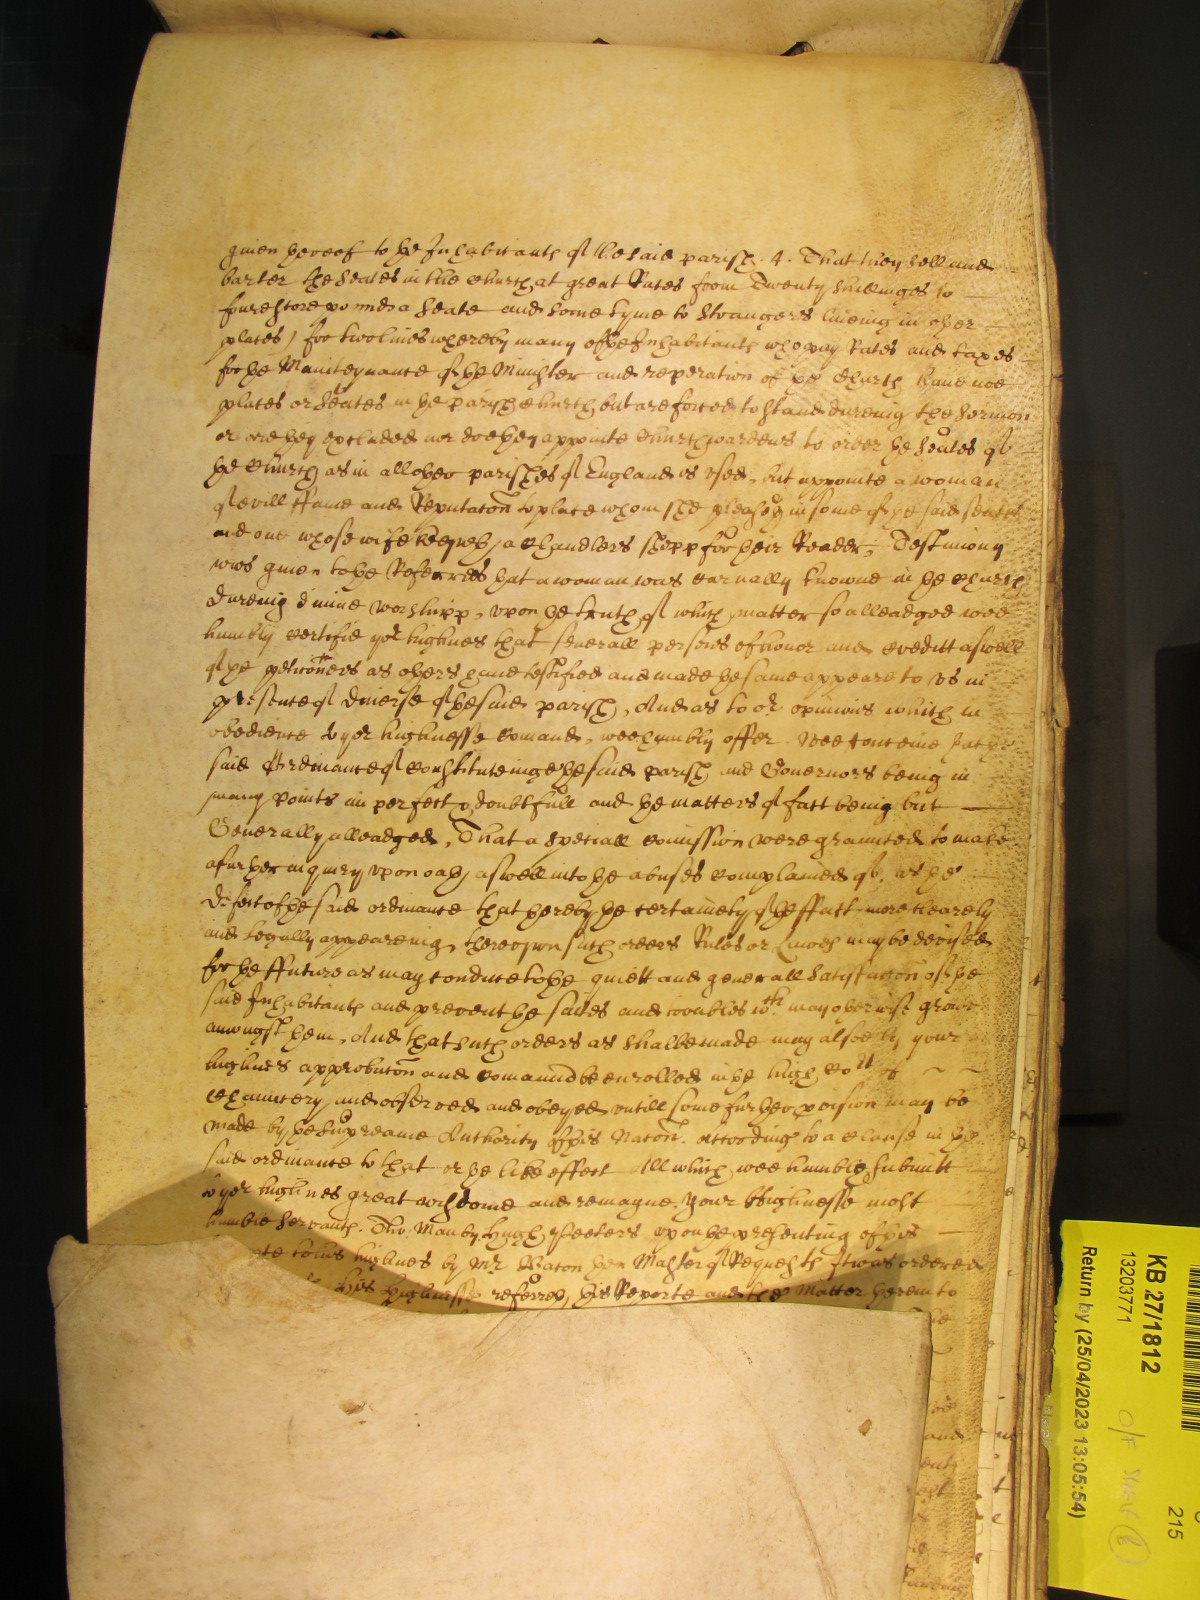 given hereof to the Inhabitants of the said parish. 4. That they sell and
barter the Seates in the Church at great Rates from Twenty shillinges to
foure score pounds a Seate and some tyme to Strangers liveing in other
places / for two lives whereby many of the Inhabitants who pay Rates and taxes
for the Mainteynance of the Minister and reperation of the Church have noe
places or Seates in the parish Church but are forced to stand dureing the Sermon
or are they excluded nor doe they appointe Churchwardens to order the Seates of
the Church as in all other parishes of England is used, but appointe a woman
of evill ffame and Reputacon to place whom she pleaseth in some of the said seates
and one whose wife keepeth a Chandlers shopp for their Reader, Testimony
was given to the Referrees that a woman was carnally knowne in the Church
dureing divine worshipp, upon the truth of which matter so alleadged wee
humbly certifie yor highnes that severall persons of honor and creditt aswell
of the peticoners as others have testified and made the same appeare to us in
presence of diverse of the said parish, And as to or opinions which in
obedience to yor highnesse comand, wee humbly offer. Wee conceive that the
said Ordinance of constituteinge the said parish and Governors being in
many points imperfect & doubtfull and the matters of fact being but
Generally alleadged, That a speciall comission were graunted to make
a further inquiry upon oath aswell into the abuses complained of, as the
defect of the said ordinance that thereby the certainety of the ffact more clearely
and legally appeareing, thereupon such orders Rules or may be devised
for the ffuture as may conduce to the quiett and generall satisfaccon of the
said Inhabitants and prevent the suites and troubles wch may otherwise grow
amongst them, And that such orders as shalbe made may alsoe by your
highnes approbacon and comaund be enrolled in the high Cort of
Chauncery and observed and obeyed untill some further pvision may be
made by the Supreame Authority of this Nacon. according to a clause in the
said ordinance to that or the like effect All which wee humblie submitt
to yor highnes great wisdome and remayne. Your Highnesse most
humble Servants. Tho: Manby. Hugh Peeters upon the presenting of this
to his highnes by Mr Bacon then Master of Requests It was ordered
his highnesse referred, this Reporte and the matter therein to
KB 27/1812
13203771
Return by (25/04/2023 13:05:54)
215